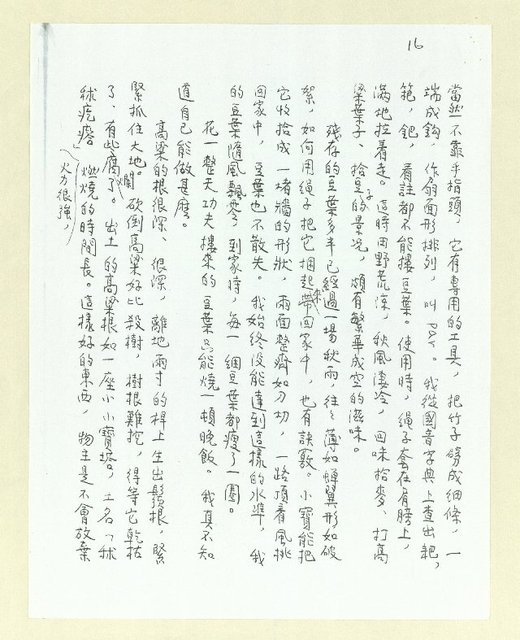 16
當然不靠手指頭，它有專用的工具，把竹子劈成細條，一
端成鈎，作扇面形排列，叫PAY。我從國音字典上查出耙，
筢，鈀，看註都不能摟豆葉。使用時，繩子套在肩膀上，
滿地拉着走。這時田野荒涼，秋風淒冷，回味拾麥、打高
粱葉子、拾豆子的景况，頗有繁華成空的滋味。
殘存的豆葉多半已經過一場秋雨，往往薄如蟬翼形如破
絮，如何用繩子把它捆起來帶回家中，也有訣竅。小寶能把
它收拾成一堵牆的形狀，兩面整齊如刀切，一路頂着風挑
回家中，豆葉也不散失。我始終没能達到這樣的水準，我
的豆葉隨風飄零，到家時，每一綑豆葉都瘦了一圈。
花一整天功夫摟來的豆葉只能燒一頓晚飯。我真不知
道自己能做甚麼。
高粱的根很深、很深，離地兩寸的桿上生出鬍根，緊
緊抓住大地。砍倒高粱好比殺樹，樹根難挖，得等它乾枯
了，有些腐爛了。出土的高粱根如一座小小寶塔，土名「秫
秫疙瘩」火力很強，燃燒的時間長。這樣好的東西，物主是不會放棄